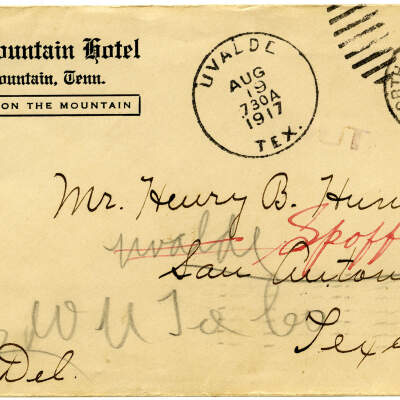 ountain Hotel
ountain, Tenn.
ON THE MOUNTAIN
UVALDE
AUG
19
730A
1917
TEX.
Mr. Henry B. Hun
uvalde Spoff
San Anton
Texa
Del.